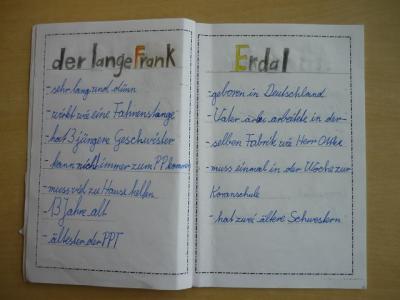 der lange Frank
-sehr lang und dünn
-wirkt wie eine Fahnenstange
-hat 3 jüngere Geschwister
-kann nicht immer zum PP kommen
-muss viel zu Hause helfen
-13 Jahre alt
-ältester der PPT
Erdal
-geboren in Deutschland
-Vater arbeitete in der-
-selben Fabrik wie Herr
-muss einmal in der Woche zur
Koranschule
-hat zwei ältere Schwestern